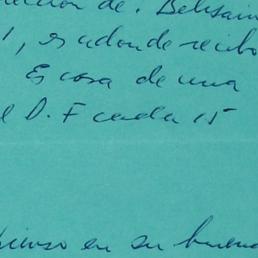 de. Belisain
1, es adonde recibo
Es cosa de una
el D. F cada 15
pienso en su buena